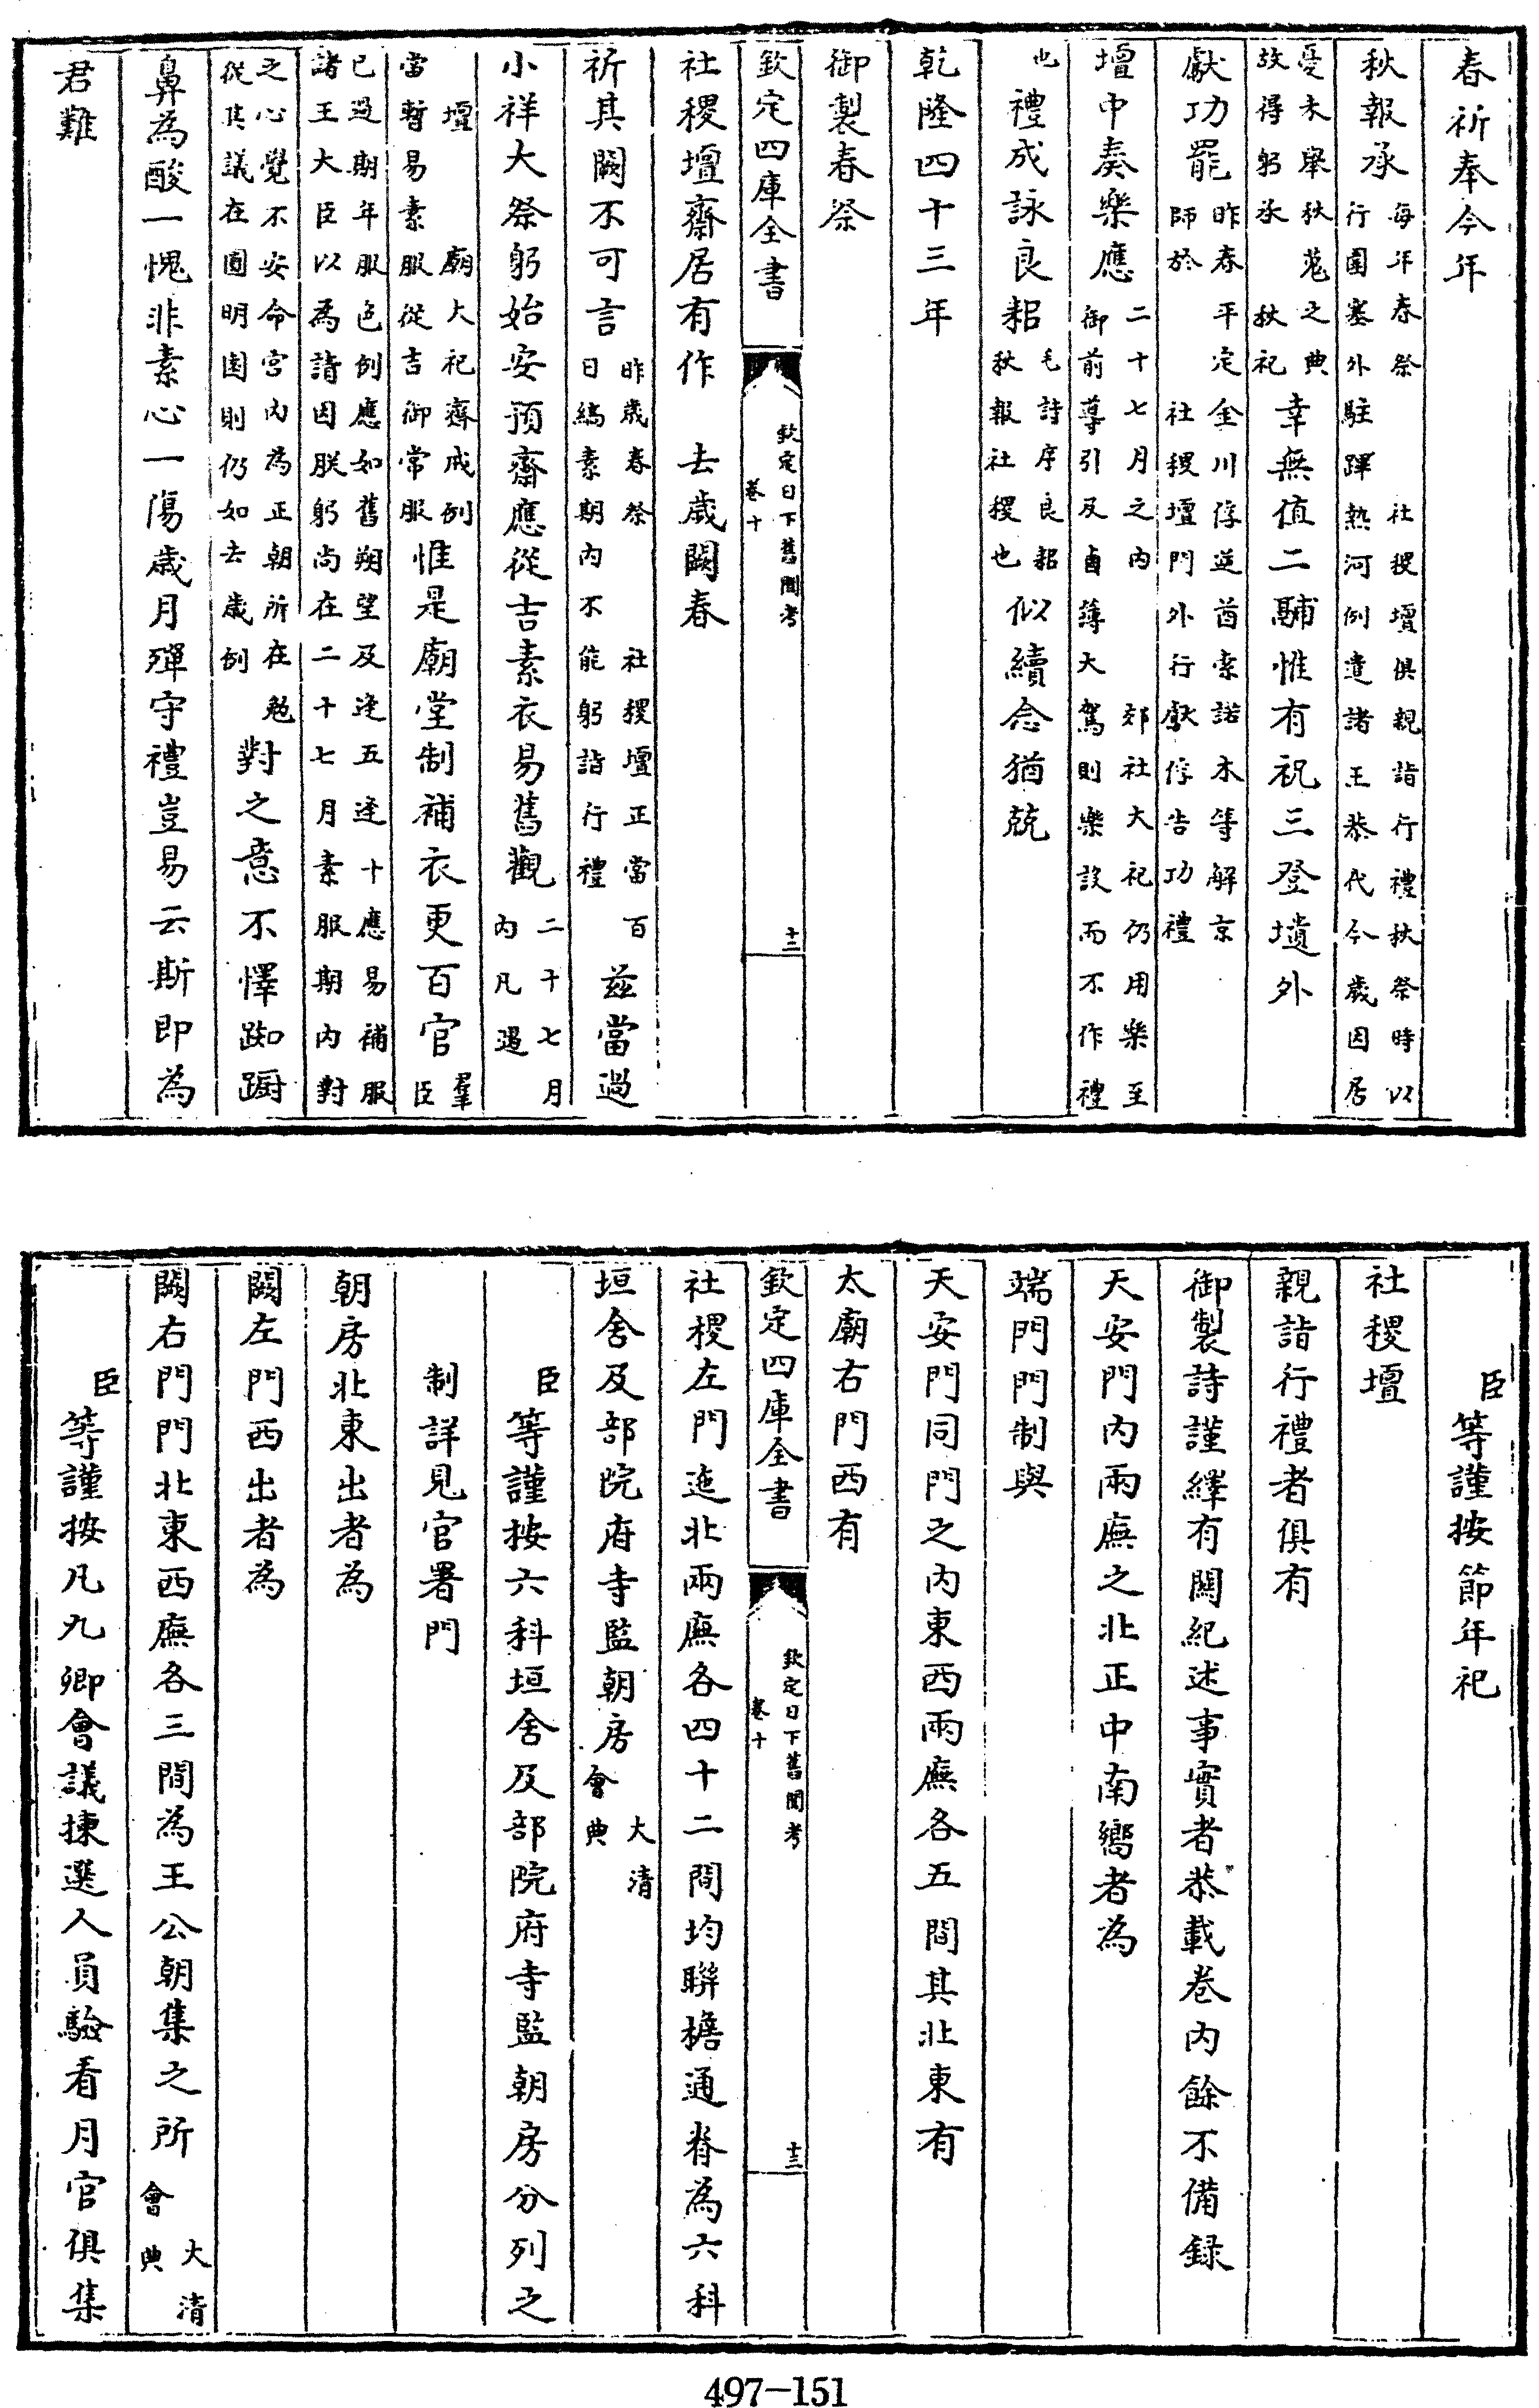 春祈奉今年
秋報承每年春祭　社稷壇俱親詣行禮秋祭時以
行圍塞外駐蹕熱河例遣諸王恭代今歲因居
憂未舉秋蒐之典
故得躬承　秋祀幸無值二酺惟有祝三登壝外
獻功罷昨春平定金川俘逆酋索諾木等解京
師於　社稷壇門外行獻俘告功禮
壇中奏樂應二十七月之內　郊社大祀仍用樂至
御前導引及鹵簿大駕則樂設而不作禮
也禮成詠良耜毛詩序良耜
秋報社稷也似續念猶兢
乾隆四十三年
御製春祭
欽定四庫全書
欽定日下舊聞考
卷十
十二
社稷壇齋居有作　去歲闕春
祈其闕不可言昨歲春祭　社稷壇正當百
日縞素期內不能躬詣行禮茲當過
小祥大祭躬始安預齋應從吉素衣易舊觀二十七月
內凡遇
壇　廟大祀齋戒例
當暫易素服從吉御常服惟是廟堂制補衣更百官羣
臣
已過期年服色例應如舊朔望及逢五逢十應易補服
諸王大臣以為請因朕躬尚在二十七月素服期內對
之心覺不安命宮內為正朝所在勉
從其議在圓明園則仍如去歲例對之意不懌踟躕
鼻為酸一愧非素心一傷歲月殫守禮豈易云斯即為
君難
臣等謹按節年祀
社稷壇
親詣行禮者俱有
御製詩謹繹有闗紀述事實者恭載卷內餘不備録
天安門內兩廡之北正中南嚮者為
端門門制與
天安門同門之內東西兩廡各五間其北東有
太廟右門西有
欽定四庫全書
欽定日下舊聞考
卷十
十三
社稷左門迤北兩廡各四十二間均聯檐通脊為六科
垣舍及部院府寺監朝房大清
會典
臣等謹按六科垣舍及部院府寺監朝房分列之
制詳見官署門
朝房北東出者為
闕左門西出者為
闕右門門北東西廡各三間為王公朝集之所大清
會典
臣等謹按凡九卿會議揀選人員驗看月官俱集
497-151